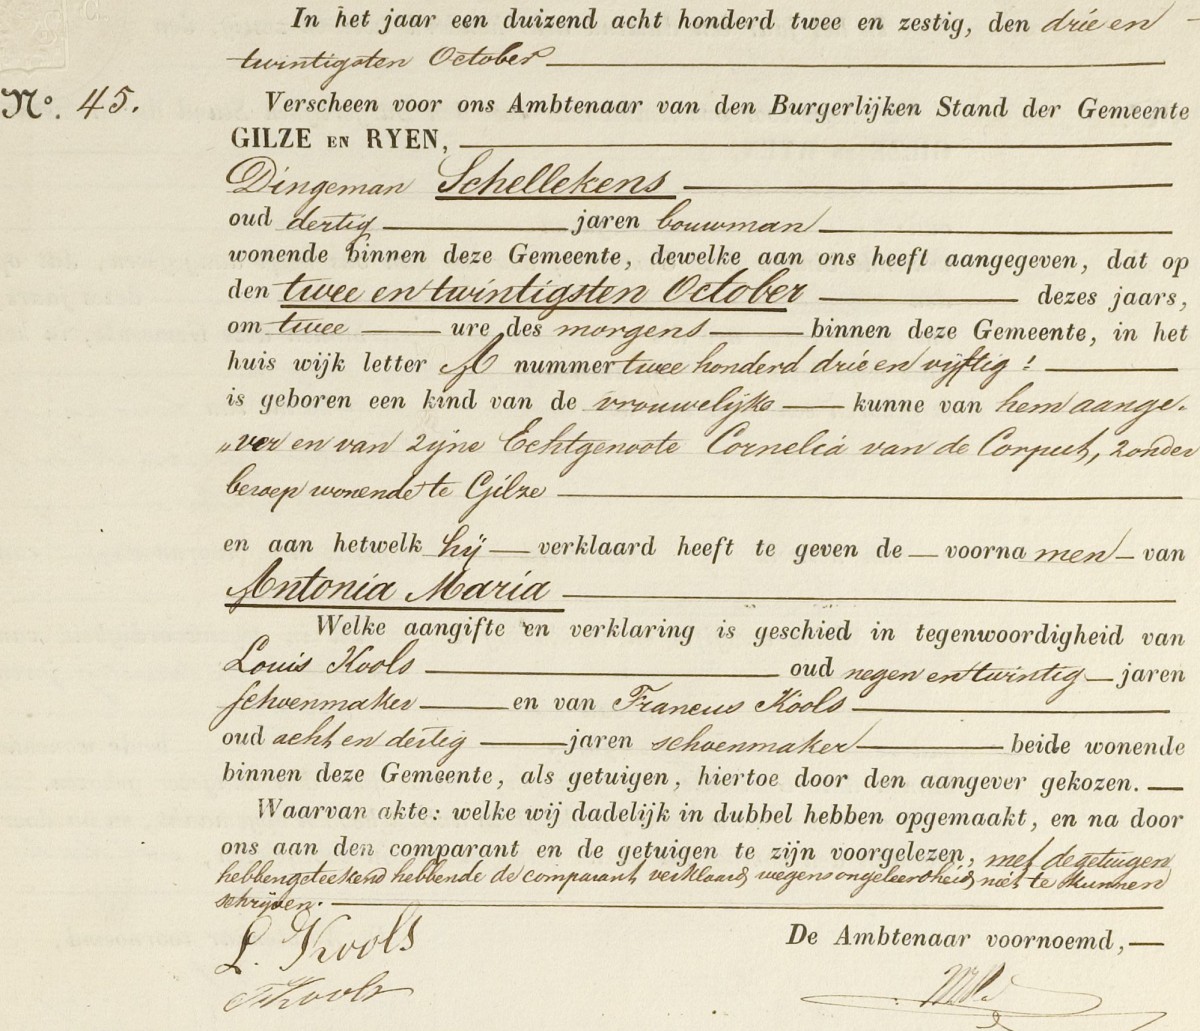 In het jaar een duizend acht honderd twee en zestig, den drie en
twintigsten October
No. 45. Verscheen voor ons Ambtenaar van den Burgerlijken Stand der Gemeente
GILZE EN RYEN,
Dingeman Schellekens
oud dertig jaren bouwman
wonende binnen deze Gemeente, dewelke aan ons heeft aangegeven, dat op
den twee en twintigsten October dezes jaars,
om twee ure des morgens binnen deze Gemeente, in het
huis wijk letter A nummer twee honderd drie en vijftig!
is geboren een kind van de vrouwelijke kunne van hem aange-
„ver en van zijne Echtgenoote Cornelia van de Corput, zonder
beroep wonende te Gilze
en aan hetwelk hij verklaard heeft te geven de voorna men van
Antonia Maria
Welke aangifte en verklaring is geschied in tegenwoordigheid van
Louis Kools oud negen en twintig jaren
schoenmaker en van Francus Kools
oud acht en dertig jaren schoenmaker beide wonende
binnen deze Gemeente, als getuigen, hiertoe door den aangever gekozen.
Waarvan akte: welke wij dadelijk in dubbel hebben opgemaakt, en na door
ons aan den comparant en de getuigen te zijn voorgelezen, met de getuigen
hebben geteekend hebbende de comparant verklaard wegens ongeleerdheid niet te kunnen
schrijven.
L. Kools
De Ambtenaar voornoemd,
F Kools